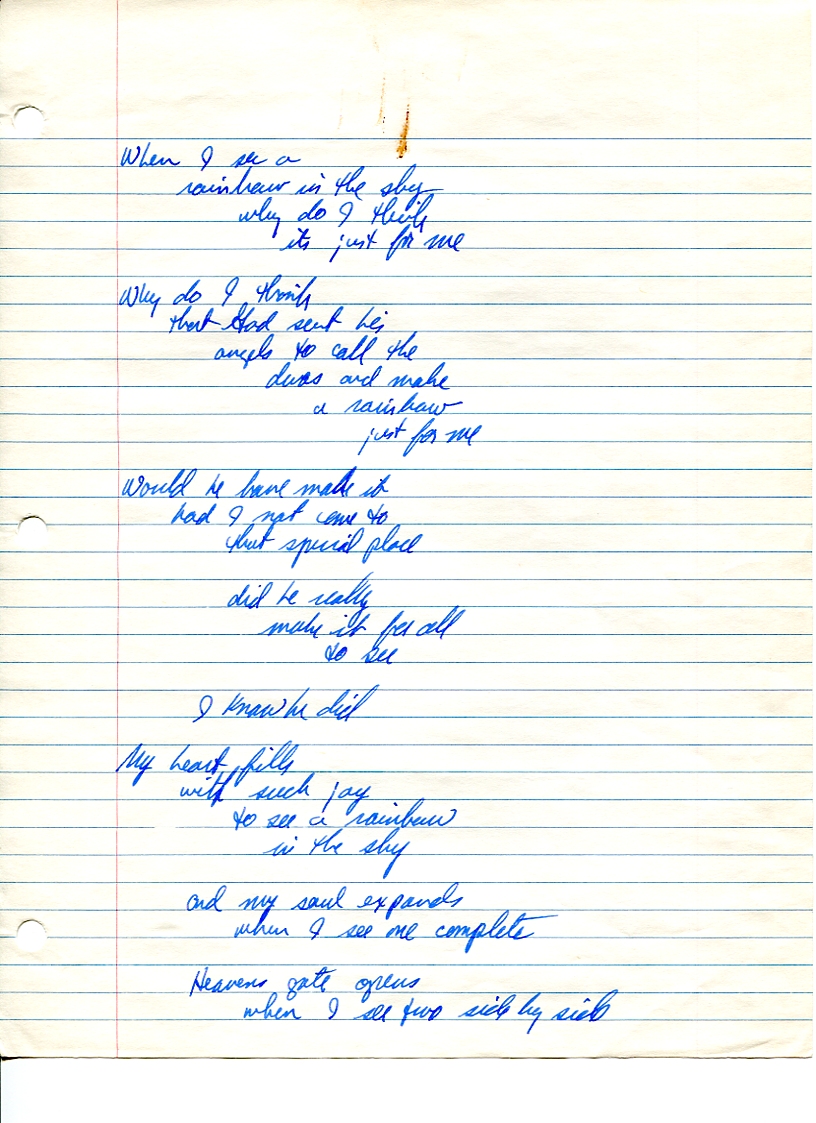 When I see a
rainbow in the sky
why do I think
its just for me
Why do I think
that God sent his
angels to call the
devas and make
a rainbow
just for me
Would he have made it
had I not come to
that special place
did he really
make it for all
to see
I know he did
My heart fills
with such joy
to see a rainbow
in the sky
and my soul expands
when I see one complete
Heavens gate opens
when I see two side by side